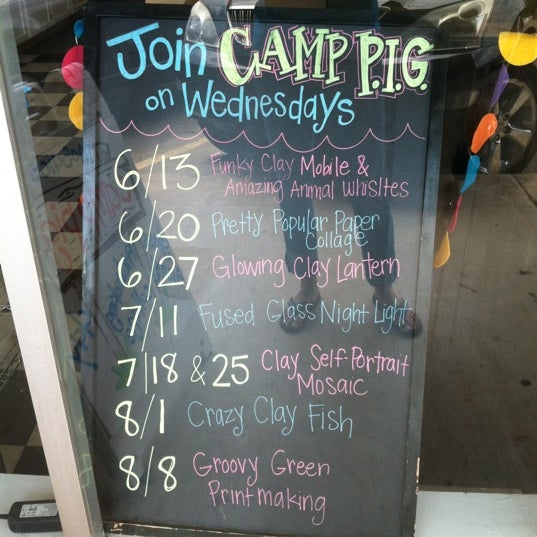 Join CAMP P.I.G.
on Wednesdays
6/13 Funky Clay Mobile &
Amazing Animal Whisltes
6/20 Pretty Popular Paper
Collage
6/27 Glowing Clay Lantern
7/11 Fused Glass Night Light
7/18 & 25 Clay Self-Portrait
Mosaic
8/1 Crazy Clay Fish
8/8 Groovy Green
Printmaking